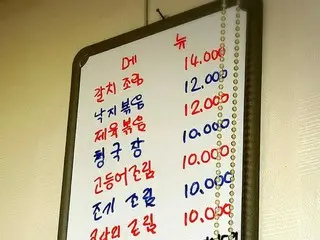 메 뉴
갈치 조림 14.000
낙지볶음 12.000
제육볶음 12.000
청국장 10.000
고등어조림 10.000
조기 조림 10.000
코다리 조림 10.000